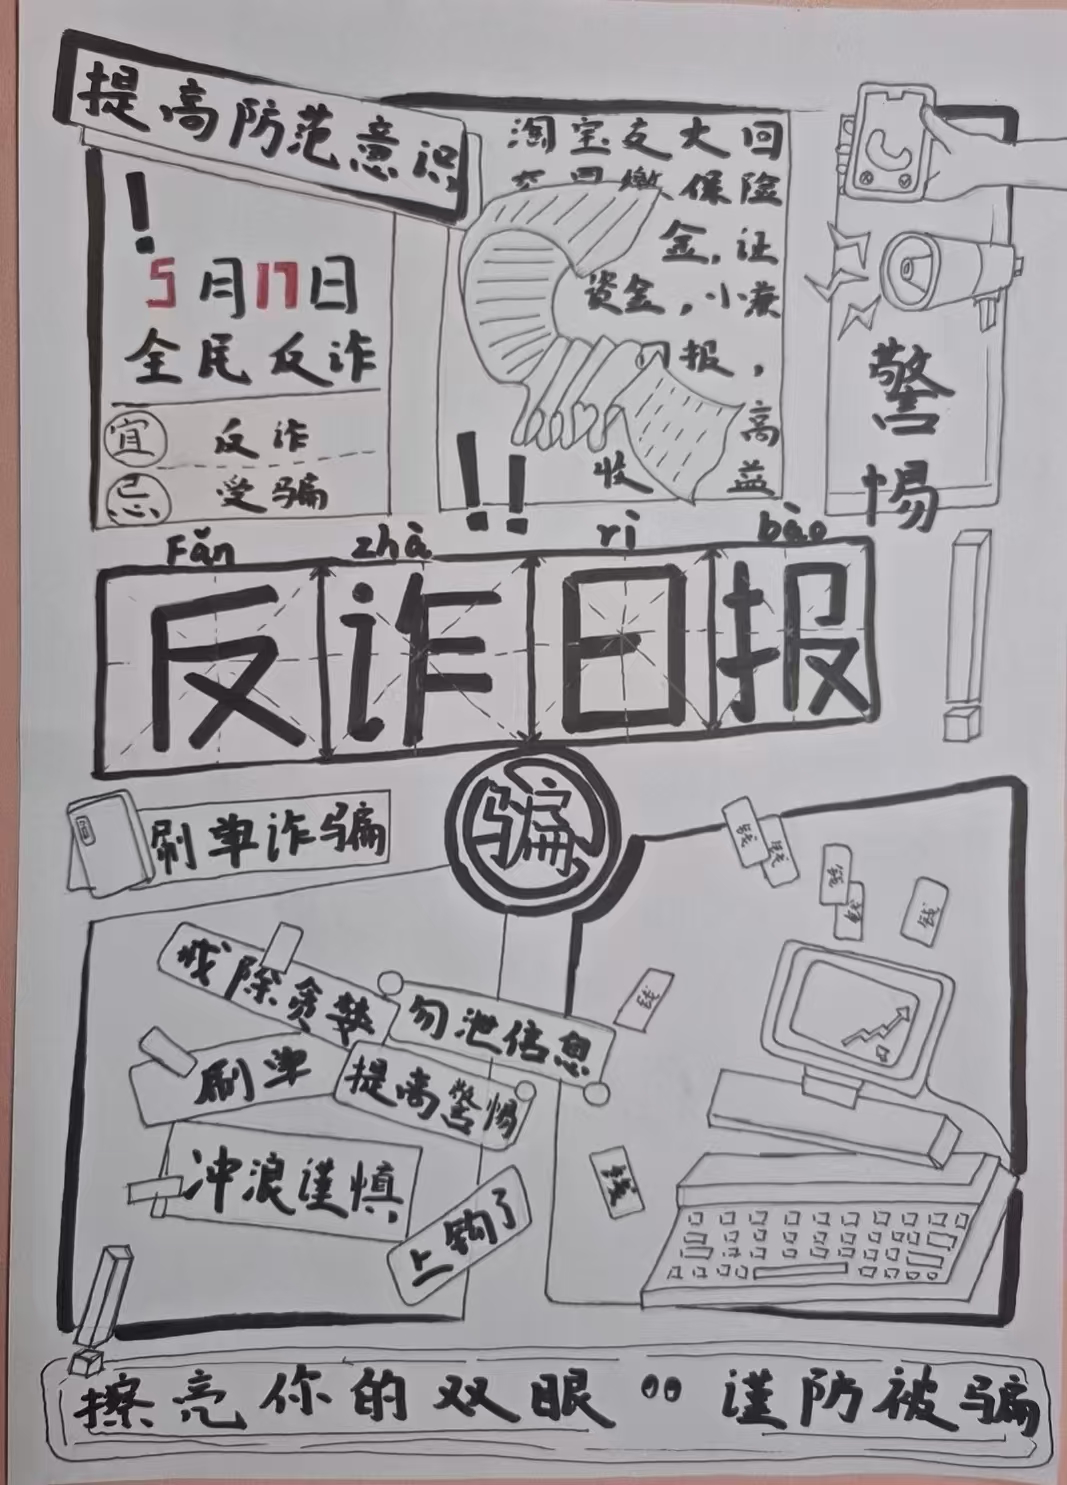 提高防范意识
!
5月17日
全民反诈
宜 反诈
忌 受骗
淘宝友大回
保险
金,证
资金,小广
报,
高
收 益
!!
警
惕
Fǎn zhà rì bào
反诈日报
骗
刷单诈骗
戒除贪婪
勿泄信息
刷单
提高警惕
冲浪谨慎
上钩了
钱
钱
钱
钱
钱
钱
钱
擦亮你的双眼 谨防被骗